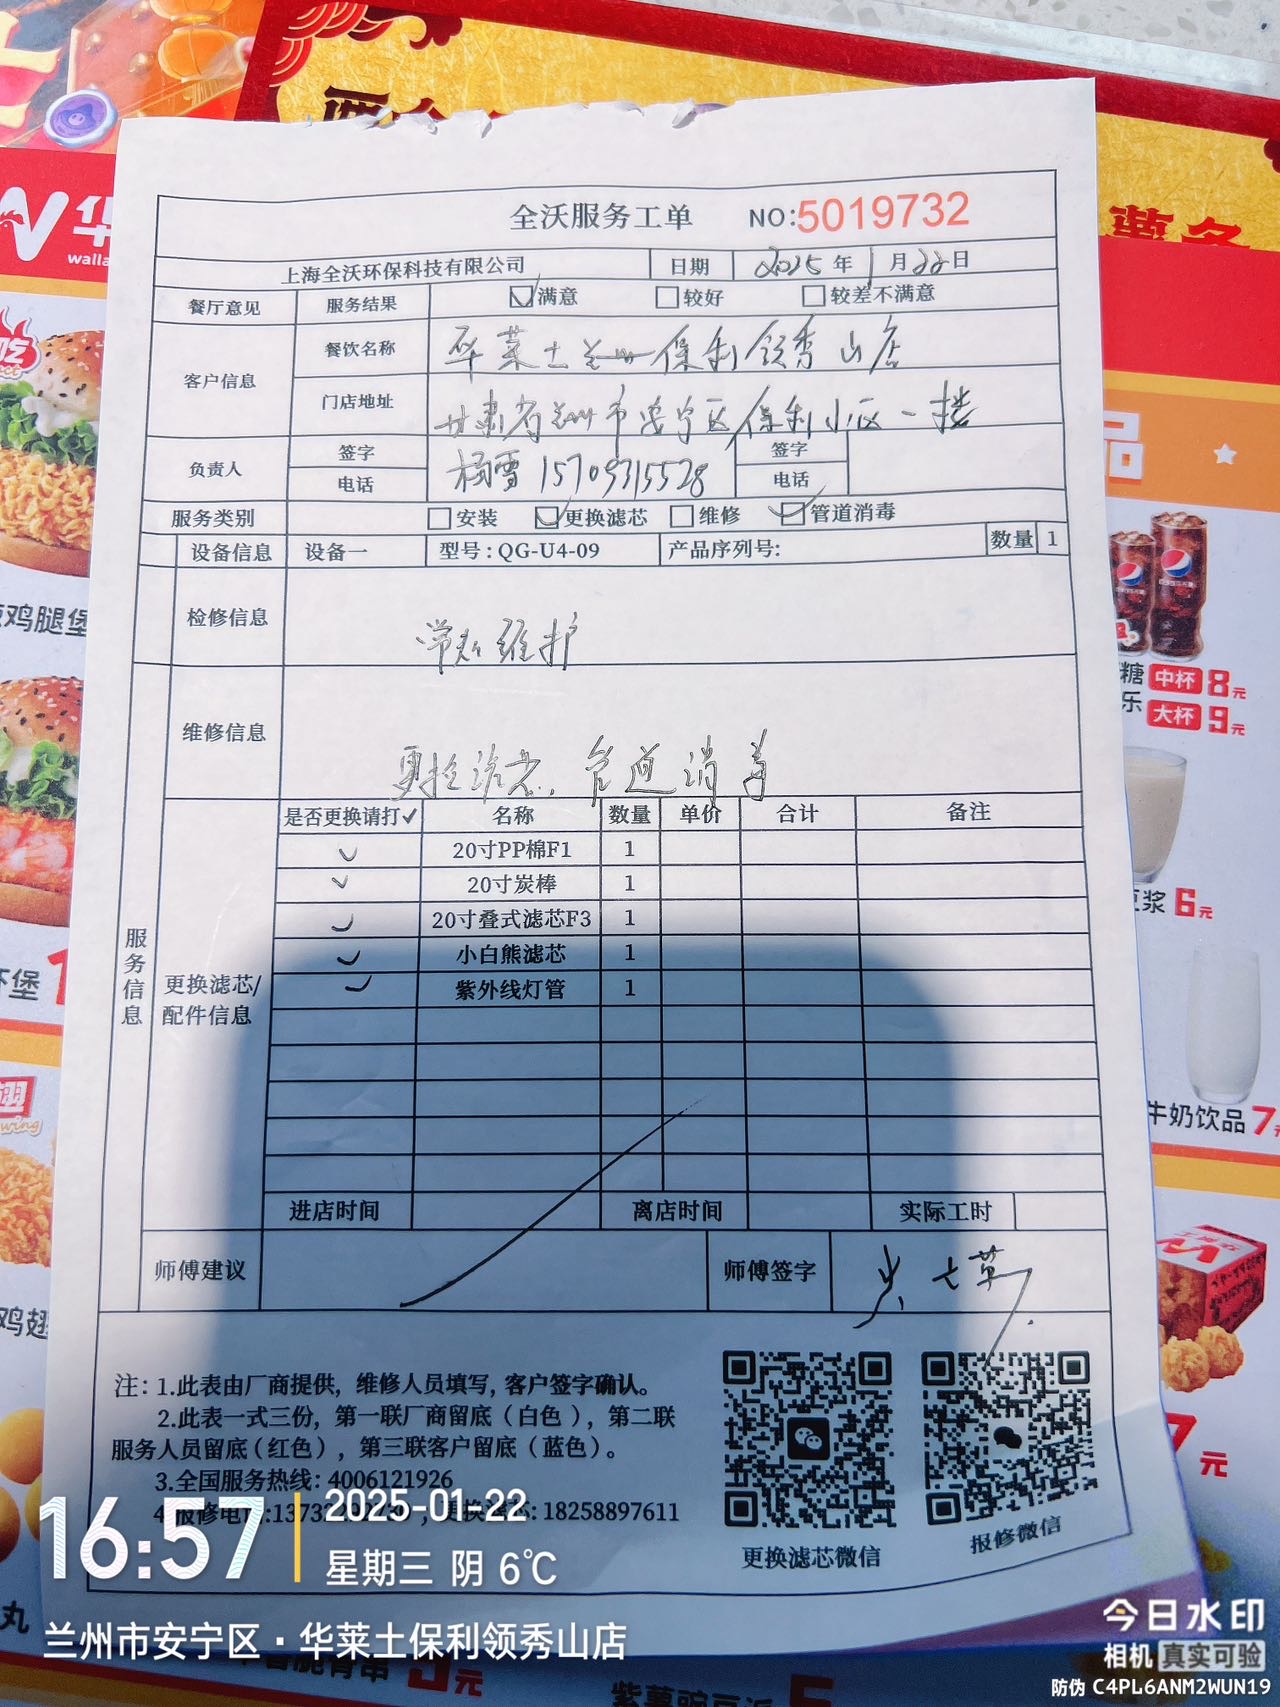 全沃服务工单 NO:5019732
上海全沃环保科技有限公司 日期 2025年1月22日
餐厅意见 服务结果 满意 较好 较差不满意
客户信息 餐饮名称 华莱士兰州保利领秀山店
门店地址 甘肃省兰州市安宁区保利小区一楼
负责人 签字 签字
杨雪 15709315528
电话 电话
服务类别 安装 更换滤芯 维修 管道消毒
设备信息 设备一 型号:QG-U4-09 产品序列号: 数量 1
检修信息 常规维护
维修信息 更换滤芯、管道消毒
服务信息
更换滤芯/配件信息
是否更换请打✓ 名称 数量 单价 合计 备注
✓ 20寸PP棉F1 1
✓ 20寸炭棒 1
✓ 20寸叠式滤芯F3 1
✓ 小白熊滤芯 1
✓ 紫外线灯管 1
进店时间 离店时间 实际工时
师傅建议 师傅签字
注: 1.此表由厂商提供，维修人员填写，客户签字确认。
2.此表一式三份，第一联厂商留底（白色），第二联
服务人员留底（红色），第三联客户留底（蓝色）。
3.全国服务热线: 4006121926
4.报修电话: , 更换滤芯: 18258897611
更换滤芯微信 报修微信
16:57
2025-01-22
星期三 阴 6℃
兰州市安宁区·华莱士保利领秀山店
今日水印
相机 真实可验
防伪 C4PL6ANM2WUN19
华
walla
鸡腿堡
鸡翅
wing
丸
薯条
品
糖 中杯 8元
乐 大杯 9元
豆浆 6元
牛奶饮品 7元
7元
5元